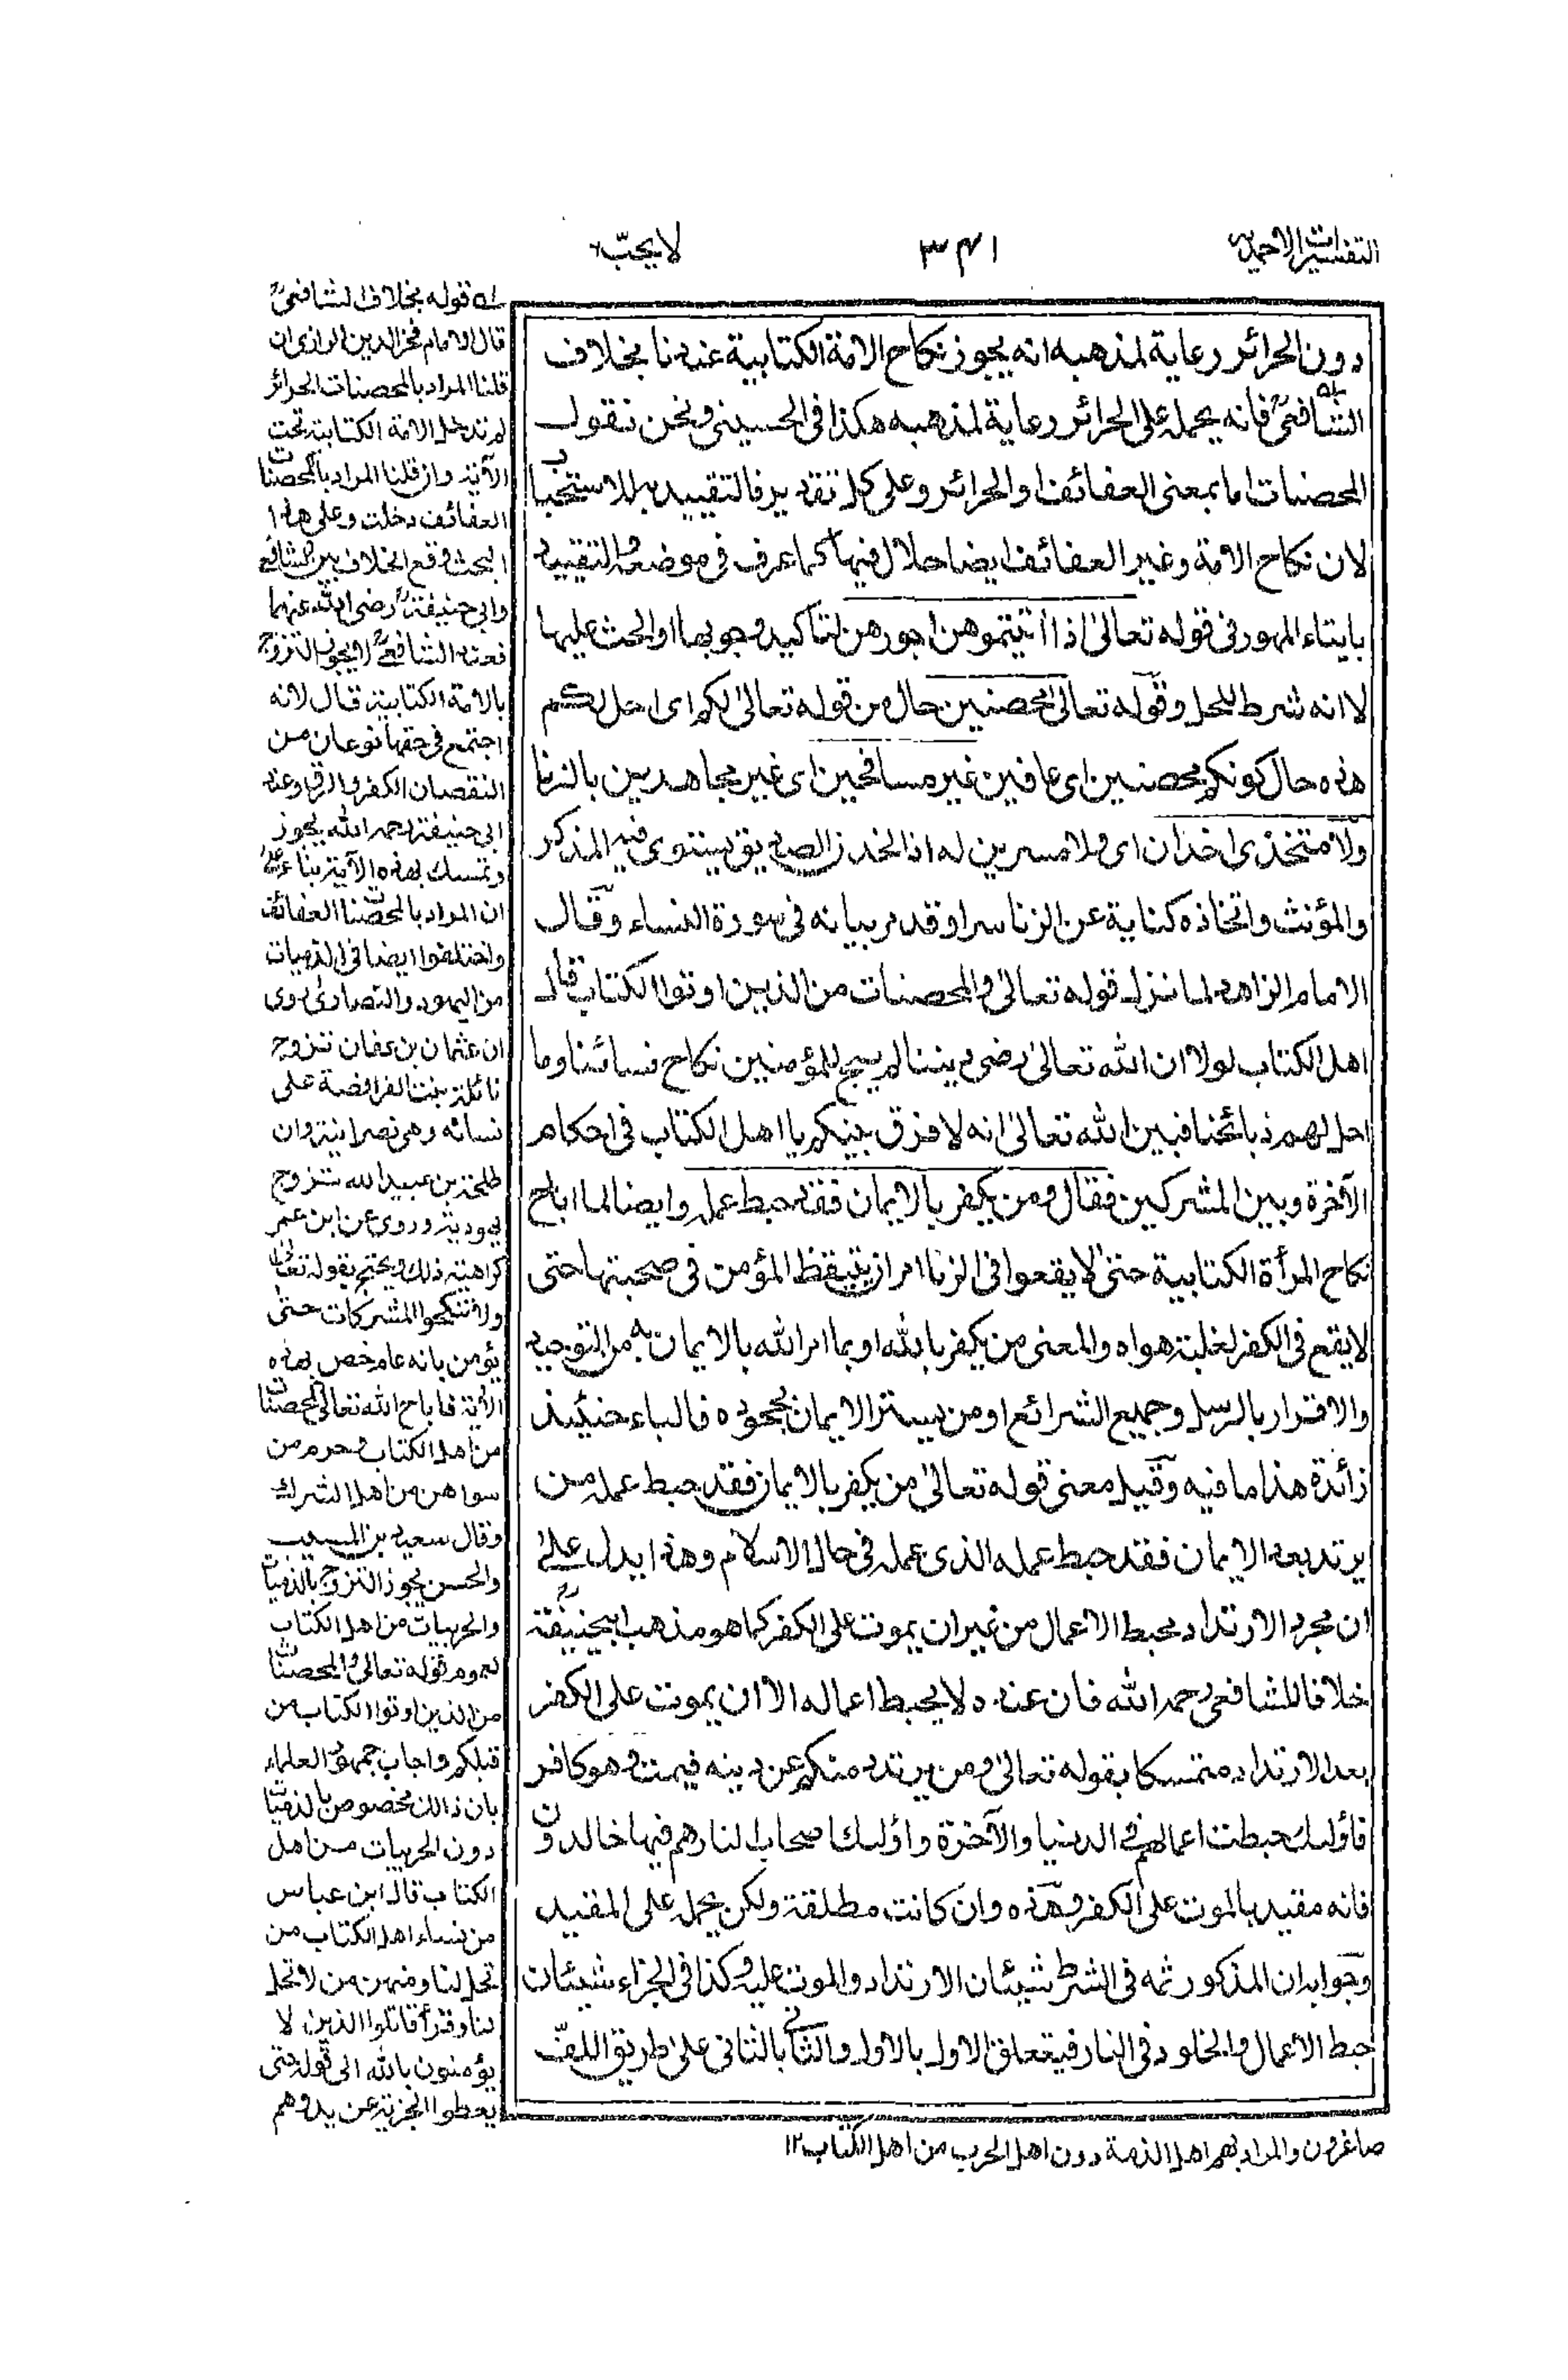 التفسيرات الاحمدية
٣٤١
لا يحب ٦
دون الحرائر رعاية لمذهبه انه يجوز نكاح الامة الكتابية عندنا بخلاف
الشافعیؒ فانه يحمله على الحرائر رعاية لمذهبه هكذا فى الحسينى ونحن نقول
المحصنات اما بمعنى العفائف او الحرائر وعلى كل تقدير فالتقييد به للاستحباب
لان نكاح الامة وغير العفائف ايضا حلال فيها كما عرف فى موضعه والتقييد
بايتاء المهور فى قوله تعالىٰ اذا اٰتيتموهن اجورهن لتاكيد وجوبها او الحث عليها
لا انه شرط للحل وقوله تعالىٰ محصنين حال من قوله تعالىٰ لكم اى احل لكم
هذه حال كونكم محصنين اى عافين غير مسافحين اى غير مجاهدين بالزنا
ولا متخذى اخدان اى ولا مسرين له اذ الخدن الصديق يستوى فيه المذكر
والمؤنث واتخاذه كناية عن الزنا سرا وقد مر بيانه فى سورة النساء وقال
الامام الزاهد لما نزل قوله تعالىٰ والمحصنات من الذين اوتوا الكتاب قال
اهل الكتاب لولا ان الله تعالىٰ رضى ديننا لم يبح للمؤمنين نكاح نسائنا وما
احل لهم ذبائحنا فبين الله تعالىٰ انه لا فرق بينكم يا اهل الكتاب فى احكام
الآخرة وبين المشركين فقال ومن يكفر بالايمان فقد حبط عمله وايضا لما اباح
نكاح المرأة الكتابية حتىٰ لا يقعوا فى الزنا امر ان يتيقظ المؤمن فى صحبتها حتى
لا يقع فى الكفر لغلبة هواه والمعنى من يكفر بالله او بما امر الله بالايمان به من التوحيد
والاقرار بالرسل وجميع الشرائع او من يستر الايمان بجحوده فالباء حنيئذ
زائدة هذا ما فيه وقيل معنى قوله تعالىٰ من يكفر بالايمان فقد حبط عمله من
يرتد بعد الايمان فقد حبط عمله الذى عمله فى حال الاسلام وهذا يدل علىٰ
ان مجرد الارتداد محبط الاعمال من غير ان يموت على الكفر كما هو مذهب ابيحنيفةؒ
خلافا للشافعى رحمه الله فان عنده لا يحبط اعماله الا ان يموت على الكفر
بعد الارتداد متمسكا بقوله تعالىٰ ومن يرتدد منكم عن دينه فيمت وهو كافر
فاؤلىك حبطت اعمالهم فى الدنيا والآخرة واؤلىك اصحاب النار هم فيها خالدون
فانه مقيد بالموت على الكفر وهذه وان كانت مطلقة ولكن يحمل على المقيد
وجوابه ان المذكور ثمه فى الشرط شيئان الارتداد والموت عليه وكذا فى الجزاء شيئان
حبط الاعمال والخلود فى النار فيتعلق الاول بالاول والثانى بالثانى على طريق اللف
له قوله بخلاف الشافعىؒ
قال الامام فخر الدين الرازى ان
قلنا المراد بالمحصنات الحرائر
لم تدخل الامة الكتابية تحت
الآية وان قلنا المراد بالمحصنات
العفائف دخلت وعلى هذا
البحث وقع الخلاف بين الشافعى
وابى حنيفةؒ رضى الله عنهما
فعند الشافعىؒ لا يجوز التزوج
بالامة الكتابية قال لانه
اجتمع فى حقها نوعان من
النقصان الكفر والرق وعند
ابى حنيفة رحمه الله يجوز
وتمسك بهذه الآية بناء على
ان المراد بالمحصنات العفائف
واختلفوا ايضا فى الذميات
من اليهود والنصارىٰ روى
ان عثمان بن عفان تزوج
نائلة بنت الفرافصة على
نسائه وهى نصرانية وان
طلحة بن عبيد الله تزوج
يهودية وروى عن ابن عمر
كراهية ذلك ويحتج بقوله تعالىٰ
ولا تنكحوا المشركات حتىٰ
يؤمن بانه عام خص بهذه
الآية فاباح الله تعالىٰ المحصنات
من اهل الكتاب وحرم من
سواهن من اهل الشرك
وقال سعيد بن المسيب
والحسن يجوز التزوج بالذميات
والحربيات من اهل الكتاب
لعموم قوله تعالىٰ والمحصنات
من الذين اوتوا الكتاب من
قبلكم واجاب جمهور العلماء
بان ذالك مخصوص بالذميات
دون الحربيات من اهل
الكتاب قال ابن عباس
من نساء اهل الكتاب من
تحل لنا ومنهن من لا تحل
لنا وقرأ قاتلوا الذين لا
يؤمنون بالله الى قوله حتى
يعطوا الجزية عن يد وهم
صاغرون والمراد بهم اهل الذمة دون اهل الحرب من اهل الكتاب ١٢